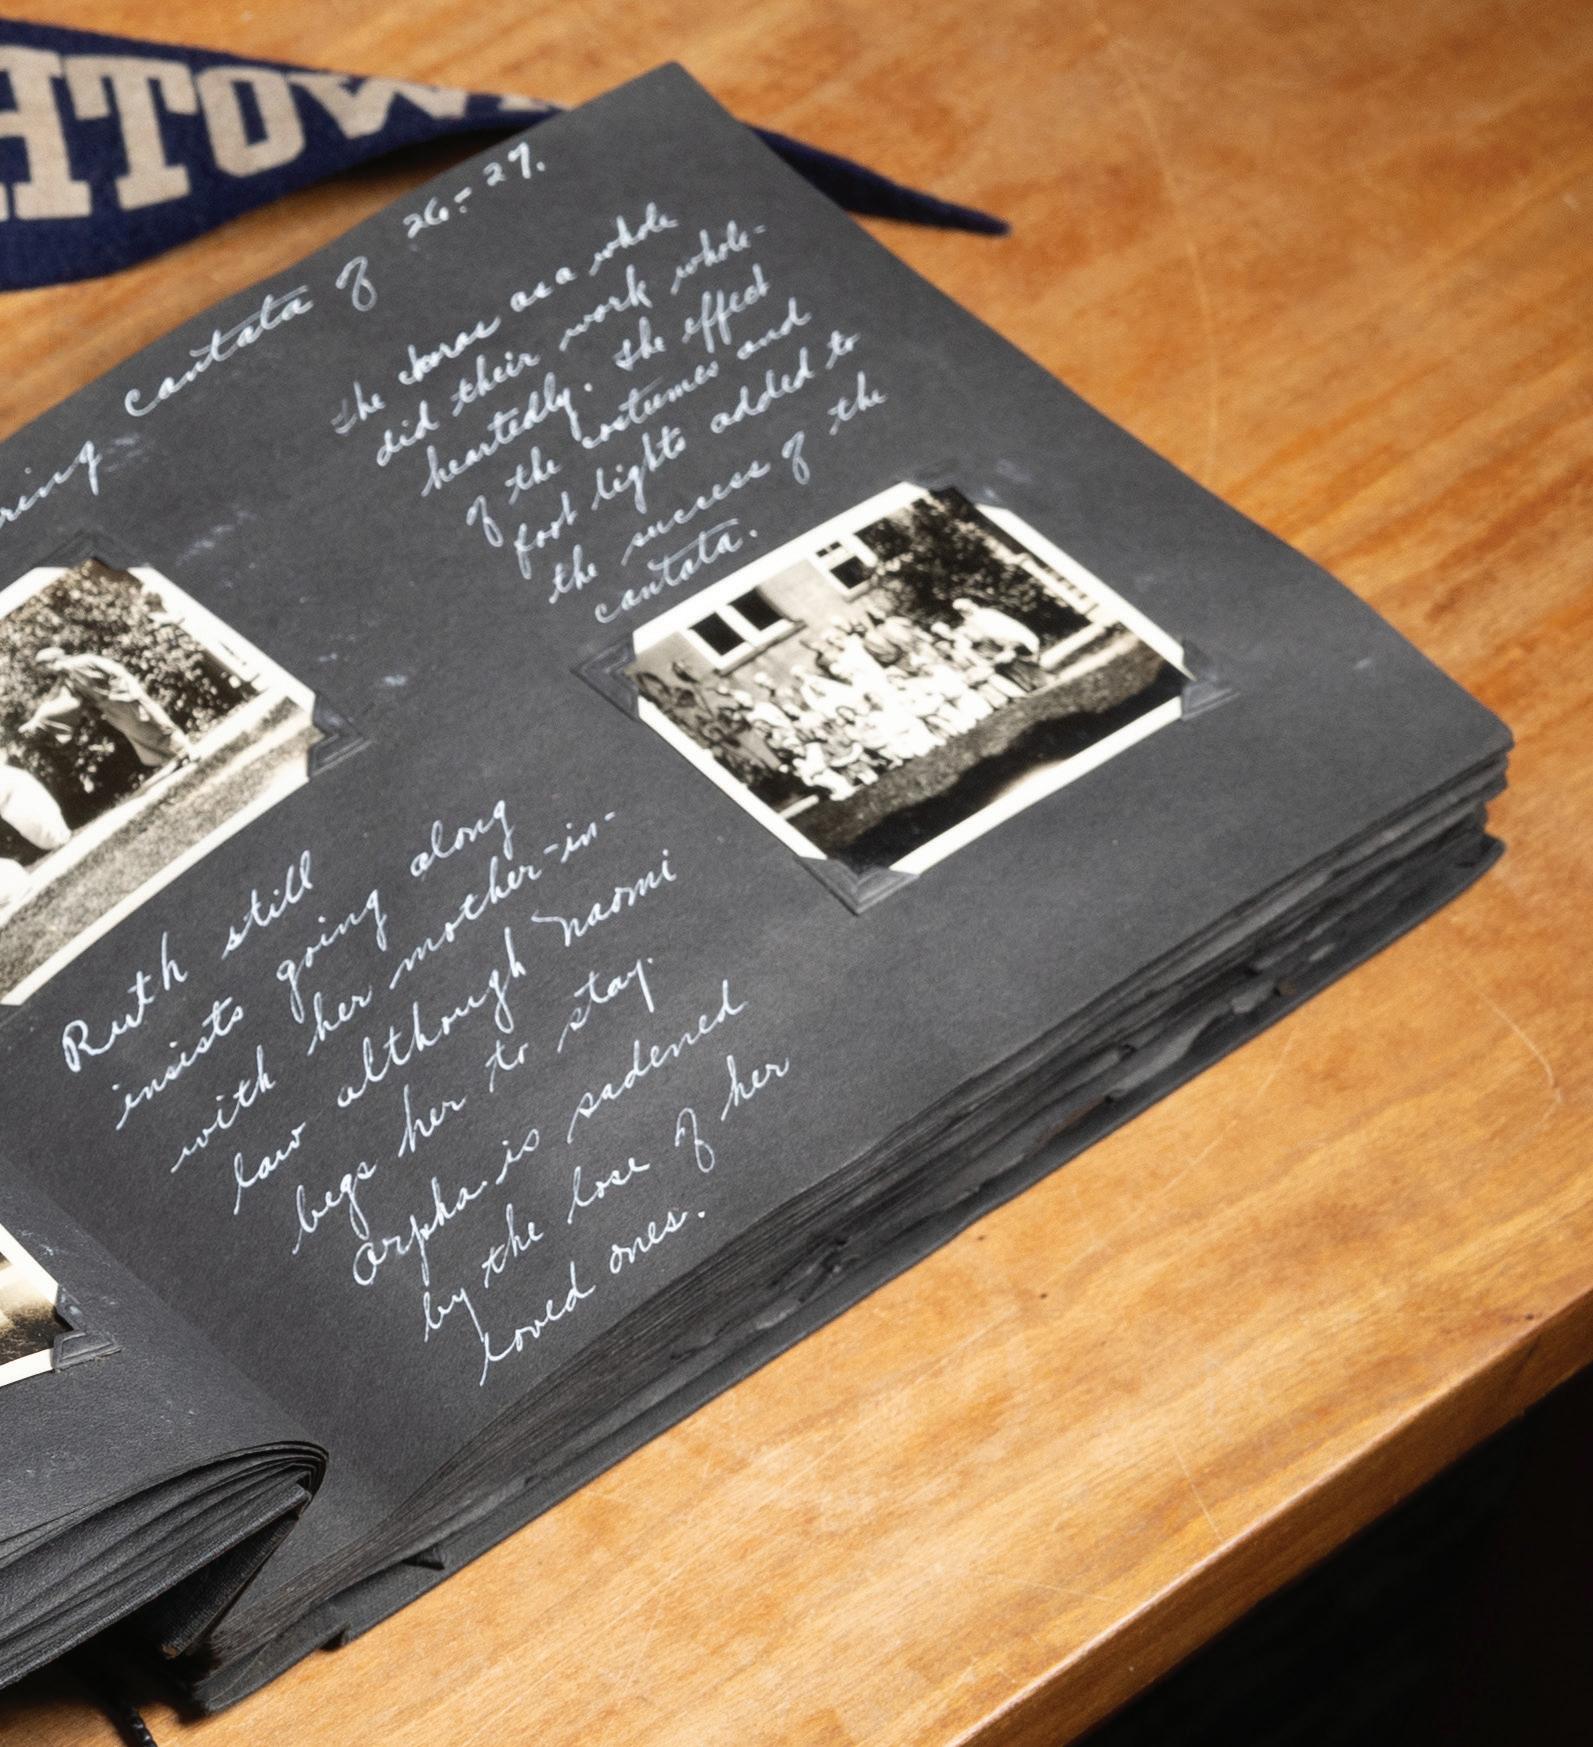 HTOWN
ring cantata of 26-27.
The choras as a whole
did their work whole-
heartedly. The effect
of the costumes and
foot lights added to
the success of the
cantata.
Ruth still
insists going along
with her mother-in-
law although Naomi
begs her to stay.
Orpha is sadened
by the lose of her
loved ones.